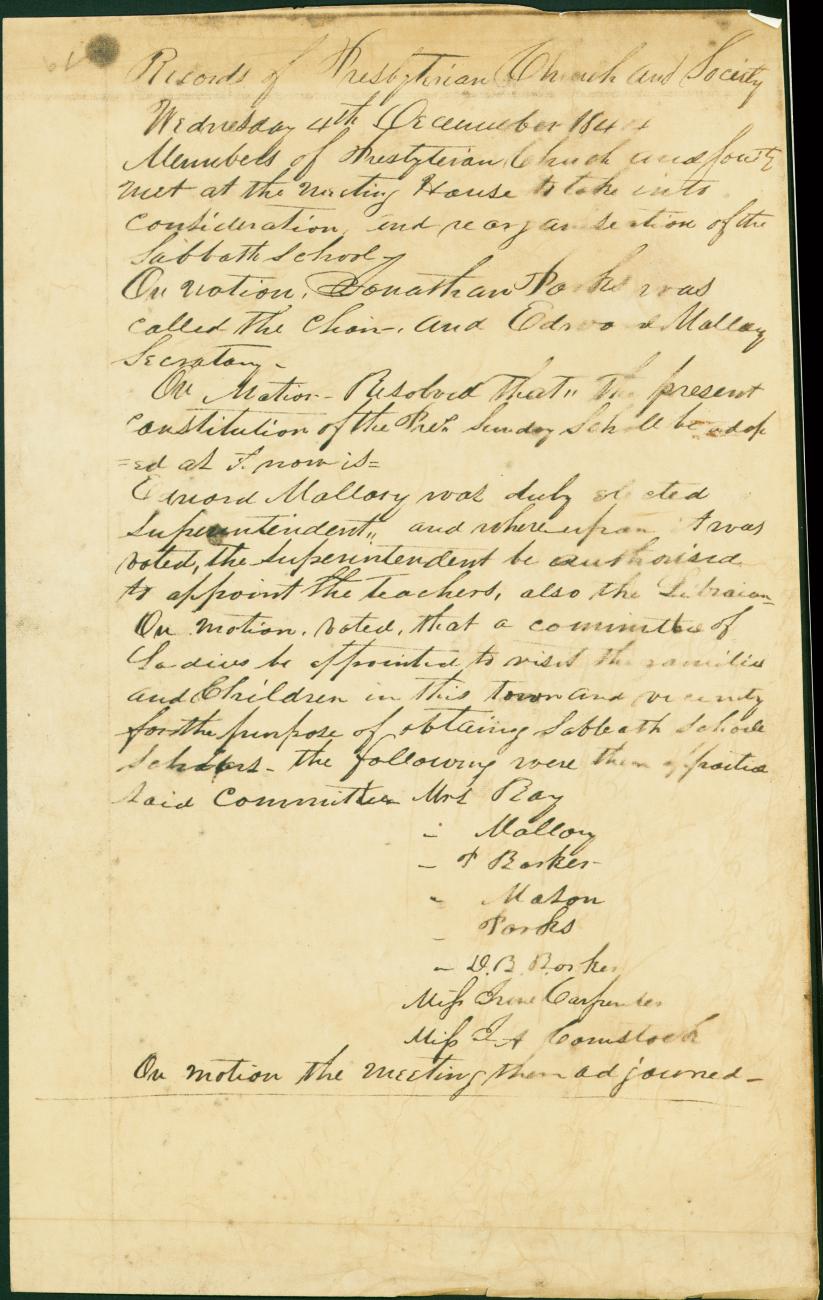 Records of Presbyterian Church and Society
Wednesday 4th December 1844
Members of Presbyterian Church and Society
met at the meeting House to take into
consideration, end reorganisation of the
Sabbath School
On motion, Jonathan Parks was
called the Chair, and Edward Mallory
Secretary-
On Motion- Resolved that" the present
constitution of the Pres. Sunday School be adop
=ed as it now is=
Edward Mallory was duly elected
Superintendent" and whereupon it was
voted, the Superintendent be authorised
to appoint the teachers, also the Librarian
On motion, voted, that a committee of
Ladies be appointed to visit the families
and Children in this town and vicinity
for the purpose of obtaining Sabbath School
Scholars- the following were then appointed
said Committee Mrs Ray
" Mallory
" Barker
" Mason
" Parks
" D.B. Barker
Miss Irene Carpenter
Miss Comstock
On motion the meeting then adjourned-